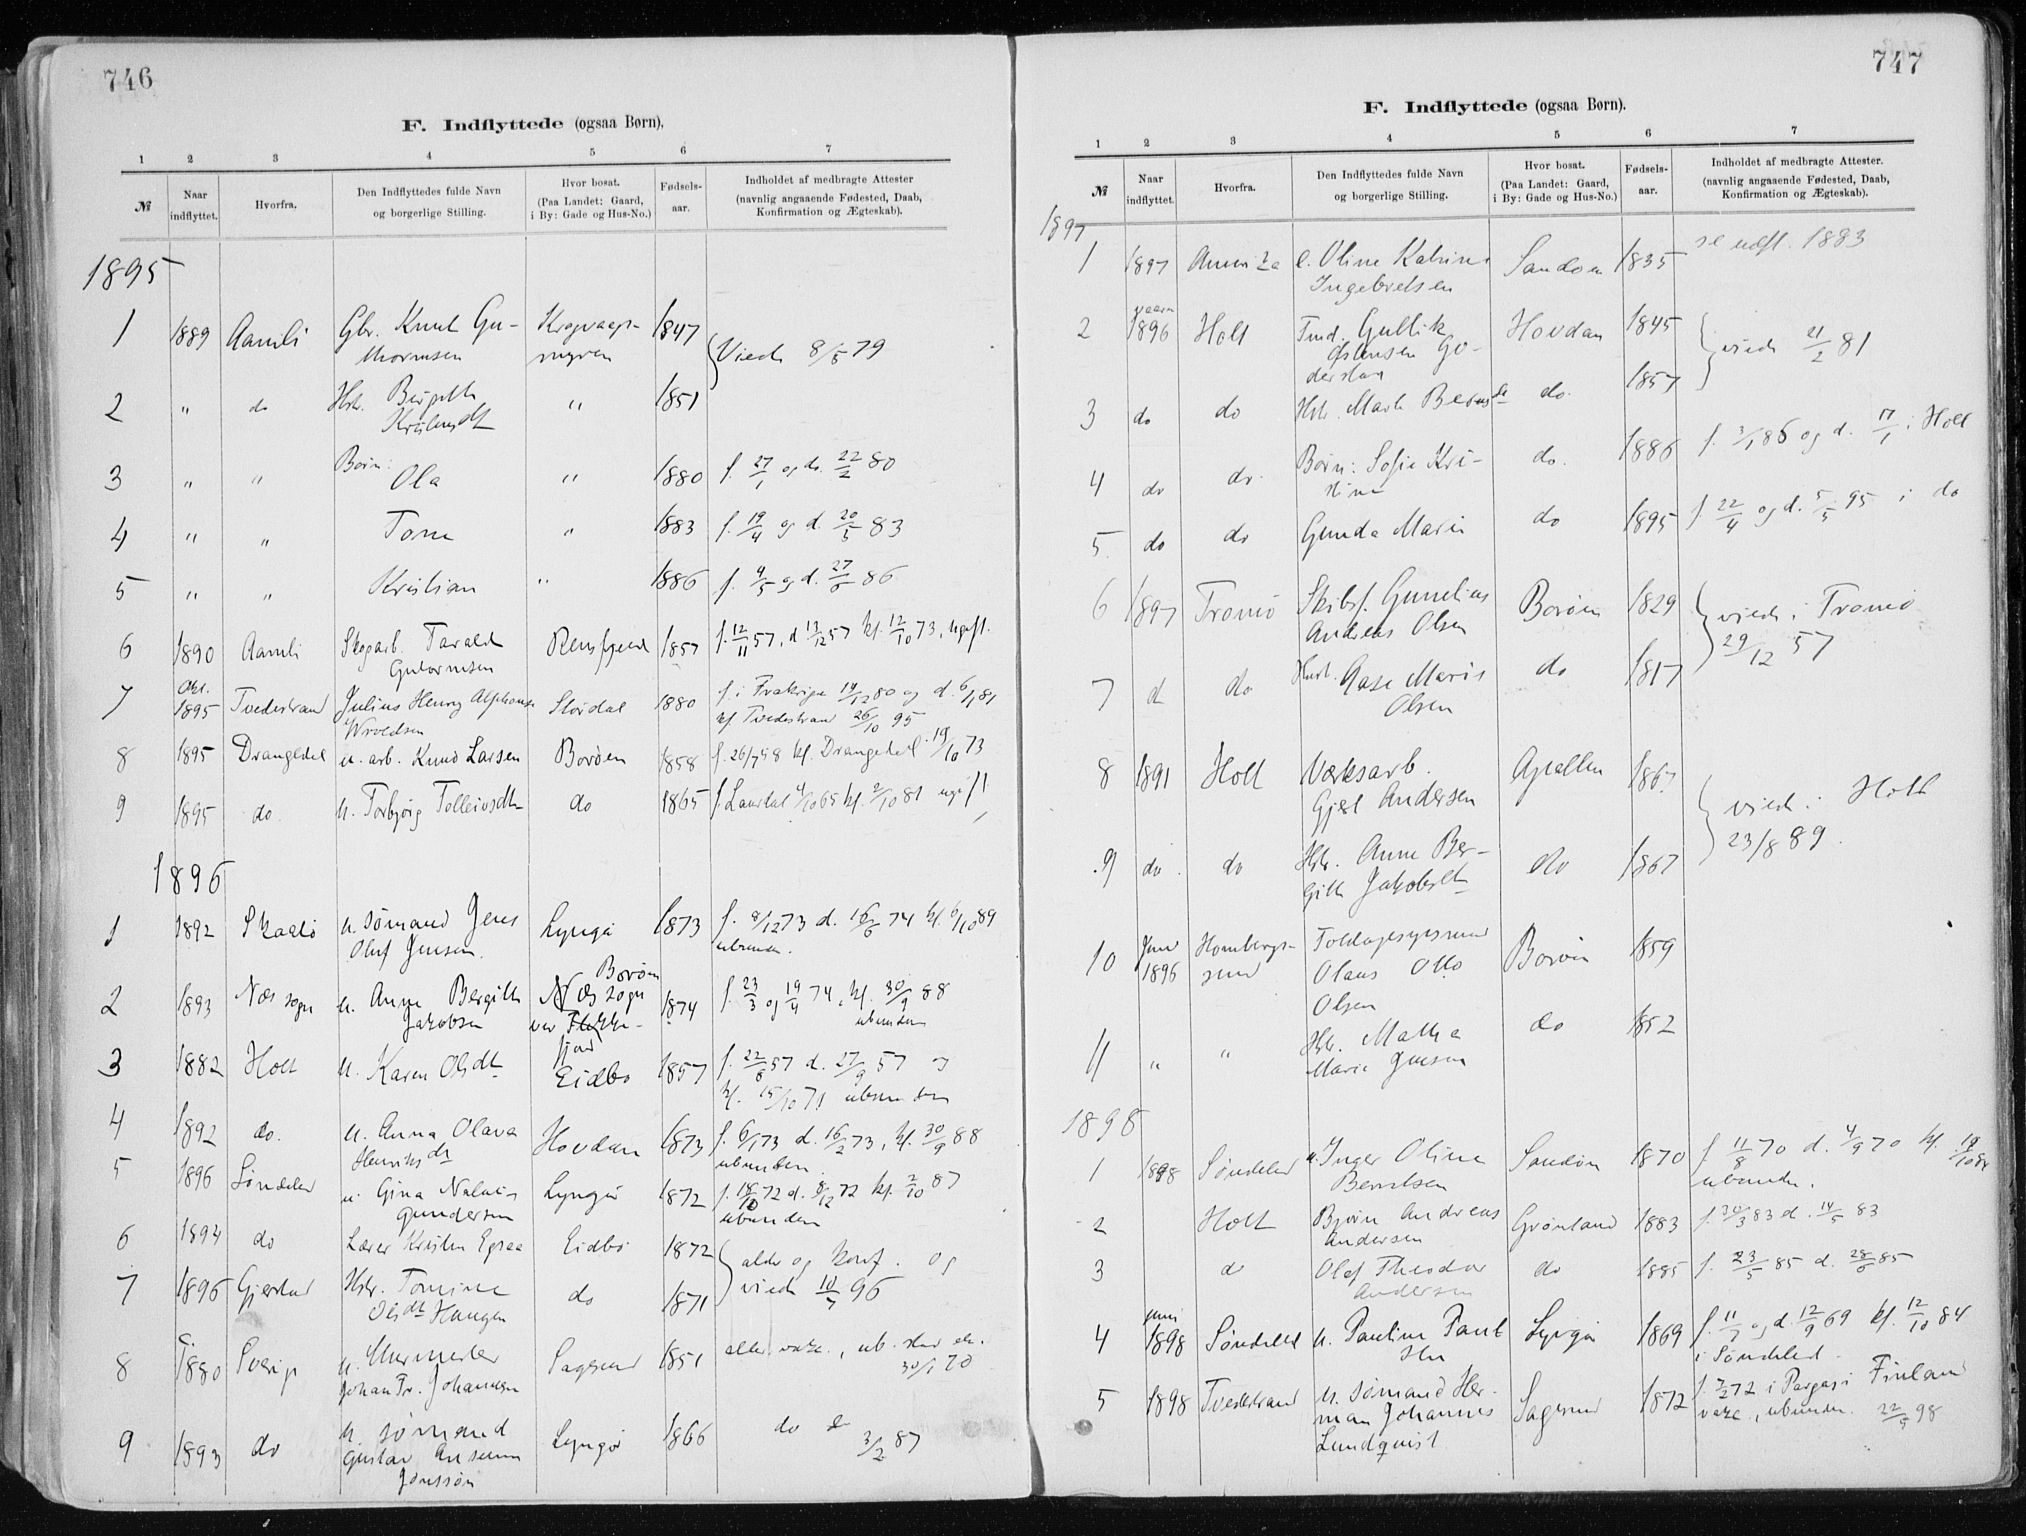 746
F. Indflyttede (ogsaa Børn).
1 2 3 4 5 6 7
№ Naar indflyttet. Hvorfra. Den Indflyttedes fulde Navn og borgerlige Stilling. Hvor bosat. (Paa Landet: Gaard, i By: Gade og Hus-No.) Fødsels-aar. Indholdet af medbragte Attester (navnlig angaaende Fødested, Daab, Konfirmation og Ægteskab).
1895
1 1889 Aamli Gbr. Knut Gu- 1847 Viede 8/5 79
2 " do Hstr. " 1851
3 " " Børn: Ola " 1880 f. 27/1 og d. 22/2 80
4 " " Tone " 1883 f. 19/4 og d. 20/5 83
5 " " Kristian " 1886 f. 9/5 og d. 27/6 86
6 1890 Aamli Skogarb. Tarald 1857 f. 12/11 57, d 13/12 57 kf. 12/10 73, ugift.
Gutormsen
7 Okt. 1895 Tvedestrand Julius Henry Alphonse Stordal 1880 f i 14/12 80 og d. 6/1 81
kf Tvedestrand 26/10 95
8 1895 Drangedal u. arb. Knud Larsen Borøen 1858 f. 26/7 58 kf. Drangedal 19/10 73
9 1895 do u. Torbjørg Tolleivsdtr do 1865 f Laurdal 4/10 65 kf. 2/10 81 ugift
1896
1 1892 Skaatø u. sømand Jens Lyngør 1873 f. 8/12 73 d. 16/6 74 kf. 6/10 89
Oluf Jensen. ubunden.
2 1893 Næs sogn u. Anne Bergitte Borøen 1874 f. 23/3 og 19/4 74, kf. 30/9 88
Jakobsen Næs sogn ubunden
3 1882 Holt u. Karen Olsdtr Eidbo 1857 f. 22/8 57 d. 27/9 57 og
kf. 15/10 71 ubunden
4 1892 do. u. Anna Olava Hovdan 1873 f. 6/1 73 d. 16/2 73, kf. 30/9 88
Henriksdtr ubunden.
5 1896 Søndeled u. Gina Lyngør 1872 f. 18/10 72 d. 8/12 72 kf. 2/10 87
Gundersen ubunden
6 1894 do Lærer Kristen Egraa Eidbo 1872 alder og konf. og
7 1896 Gjerstad Hstr. Tomine do 1871 viede 96
Olsdtr Haugen
8 1880 Sverig u. Murmester Sagesund 1851 alder, vacc., ub. 30/1 70
Johan Fr. Johansen
9 1893 do u. sømand Lyngør 1866 do 3/2 87
Gustav
Jonssøn
747
F. Indflyttede (ogsaa Børn).
1 2 3 4 5 6 7
№ Naar indflyttet. Hvorfra. Den Indflyttedes fulde Navn og borgerlige Stilling. Hvor bosat. (Paa Landet: Gaard, i By: Gade og Hus-No.) Fødsels-aar. Indholdet af medbragte Attester. (navnlig angaaende Fødested, Daab, Konfirmation og Ægteskab).
1897
1 1897 e. Oline Katrine Sandøen 1835 se udfl. 1883
Ingebretsen
2 1896 Holt Gullik Hovdan 1845 viede 21/2 81
Østensen
3 do do Hstr. do. 1857
4 do do. Børn: Sofie Kri- do. 1886 f. 3/1 86 og d. 17/1 i Holt
stine
5. do do Gunda Marie do 1895 f. 22/4 og d. 5/5 95 i do
6 1897 Tromø Skibsf. Gunelius Borøen 1829 viede i Tromø
Andreas Olsen 29/12 57
7 d do Hustr. Aase Marie do 1817
Olsen
8 1891 Holt Værksarb. 1867 viede i Holt
Gjest Andersen 23/8 89.
9 do. do Hstr. Anne Ber- do 1867
gitte Jakobsdtr
10 Juni 1896 Hombergs- Borøen 1859
sund Olaus Otto
Olsen
11 " " Hstr. Mathea do 1852
Marie Jensen
1898
1 1898 Søndeled u. Inger Oline Sandøen 1870 f 11/8 70 d. 4/9 70 kf. 19/10 84
Berntsen ubunden.
2 Holt Bjørn Andreas Grønland 1883 f. 30/3 83 d. 14/5 83
Andersen
3 do Olaf Theodor do 1885 f. 23/5 85 d. 28/6 85
Andersen
4 juni 1898 Søndeled u. Pauline Lyngør 1869 f. 11/7 og d. 12/9 69 kf. 12/10 84
i Søndeled.
5 1898 Tvedestrand u. sømand Her- Sagesund 1872 f. 7/2 72 i Pargas i Finland
man Johannes vacc., ubunden. 22/9 98
Lundquist